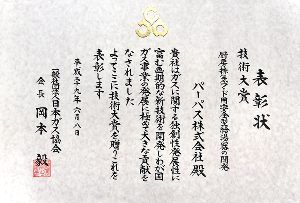 表彰状
技術大賞
パーパス株式会社殿
貴社はガスに関する独創性発展性に
富む画期的な新技術を開発しわが国
ガス事業の発展に極めて大きな貢献を
なされました
よってここに技術大賞を贈りこれを
表彰します
平成二十九年六月八日
一般社団法人日本ガス協会
会長 岡本 毅